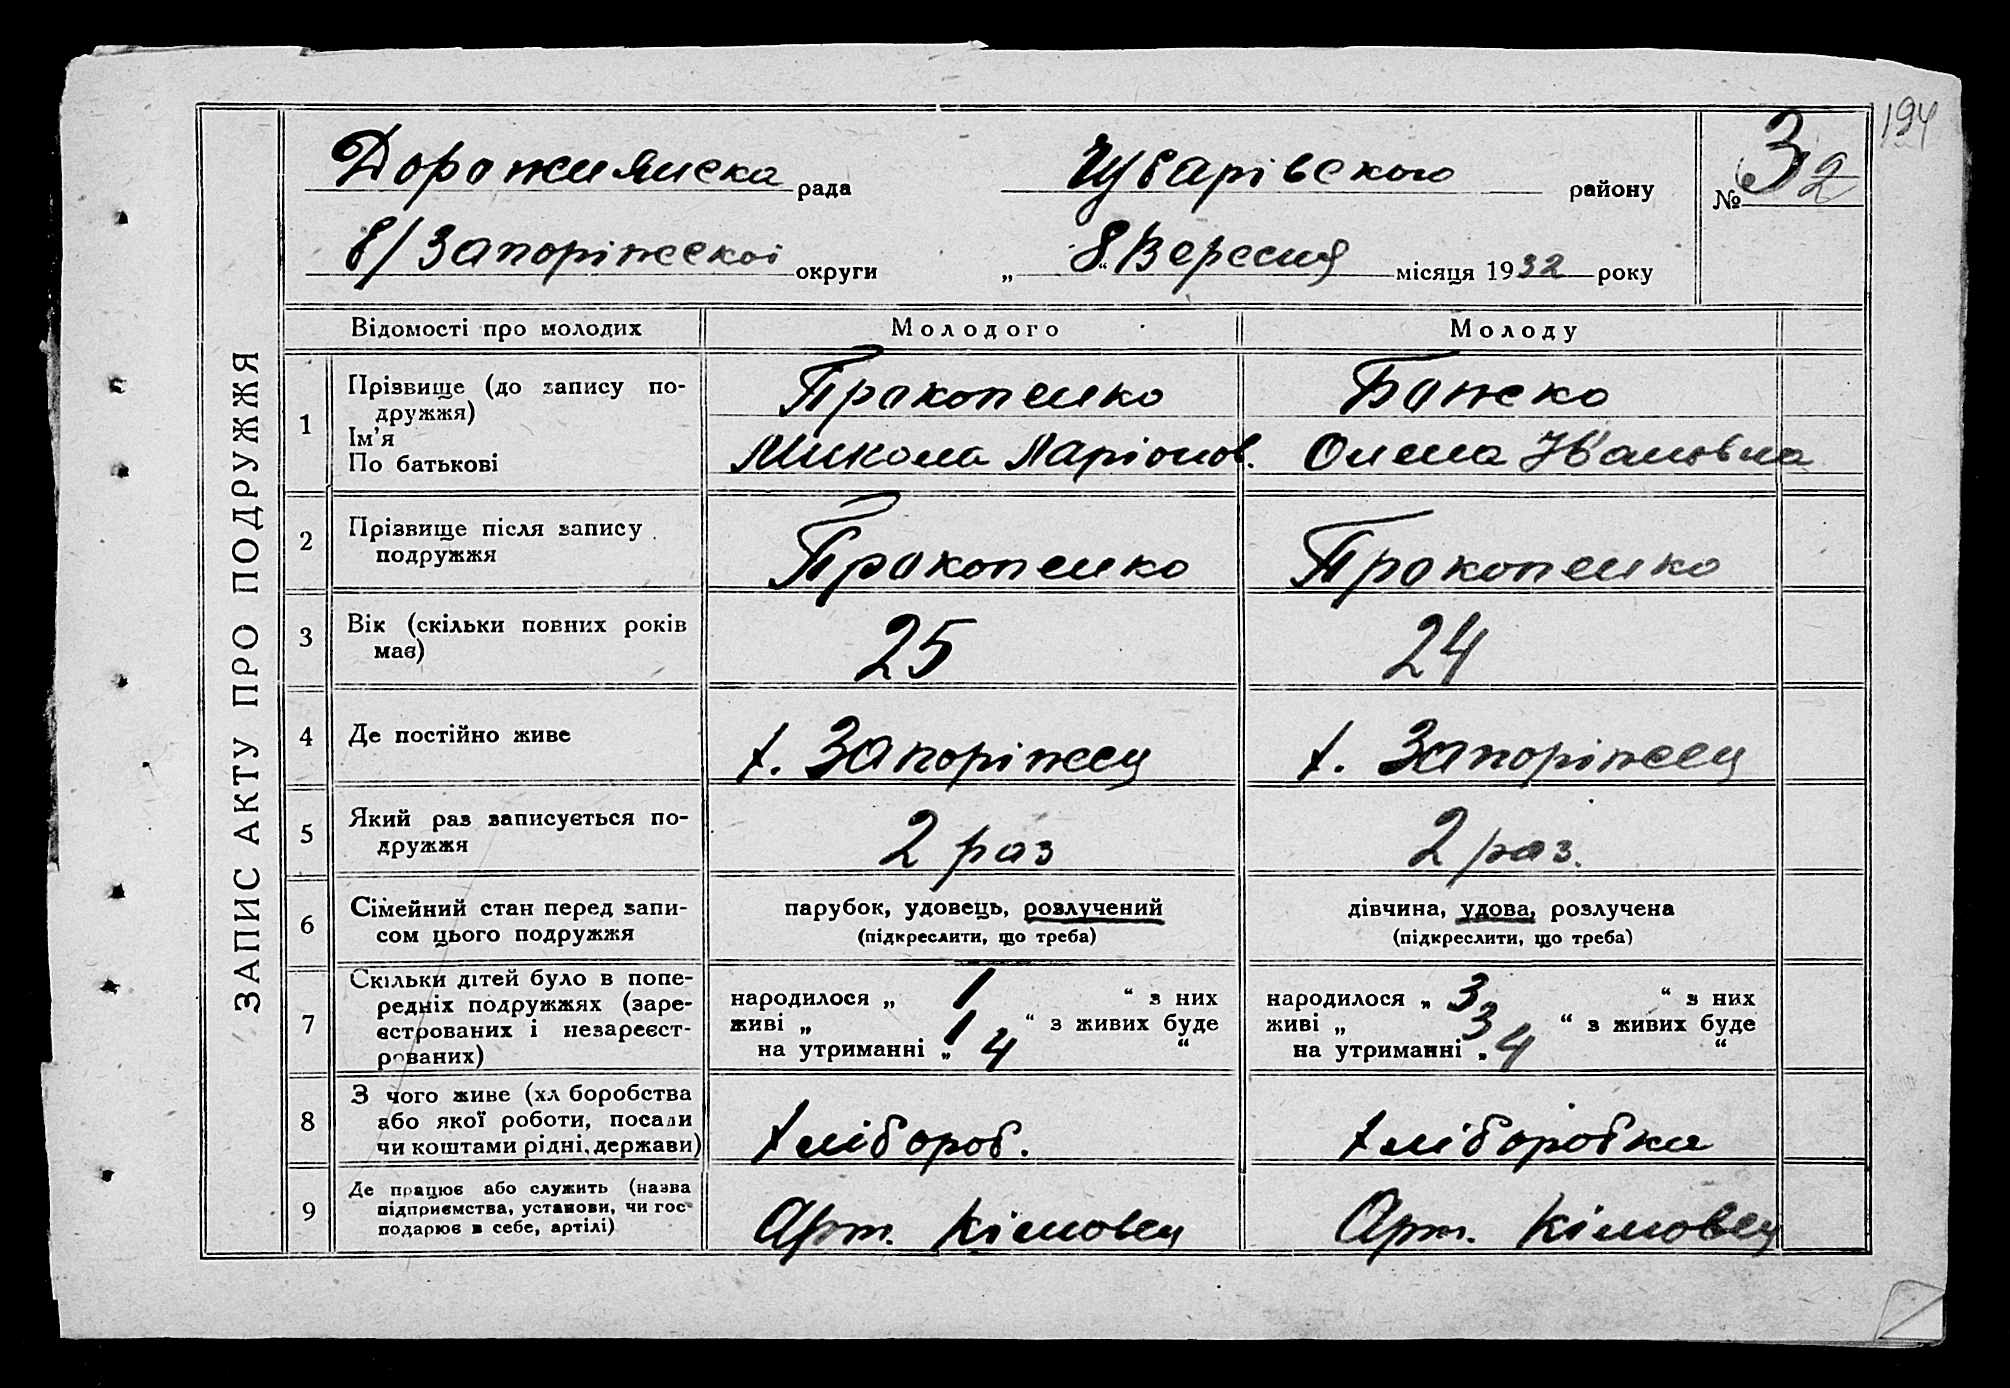 194
Дорожнянска рада Чубарівского району № 32
б/Запоріжської округи „8“ Вересня місяця 1932 року
ЗАПИС АКТУ ПРО ПОДРУЖЖЯ
Відомості про молодих Молодого Молоду
1 Прізвище (до запису по-
дружжя) Прокопенко Божско
Ім’я
По батькові Микола Ларіонов. Олена Івановна
2 Прізвище після запису
подружжя Прокопенко Прокопенко
3 Вік (скільки повних років
має) 25 24
4 Де постійно живе х. Запоріжец х. Запоріжец
5 Який раз записується по-
дружжя 2 раз 2 раз.
6 Сімейний стан перед запи-
сом цього подружжя
парубок, удовець, розлучений дівчина, удова, розлучена
(підкреслити, що треба) (підкреслити, що треба)
7 Скільки дітей було в попе-
редніх подружжях (заре-
єстрованих і незареєст-
рованих)
народилося „ 1 “ з них народилося „ 3 “ з них
живі „ 1 “ з живих буде живі „ 3 “ з живих буде
на утриманні „ 4 “ на утриманні „ 4 “
8 З чого живе (хлiборобства
або якої роботи, посади
чи коштами рідні, держави) хлібороб. хліборобка
9 Де працює або служить (назва
підприємства, установи, чи гос-
подарює в себе, артілі) Арт. Кімовец Арт. Кімовец